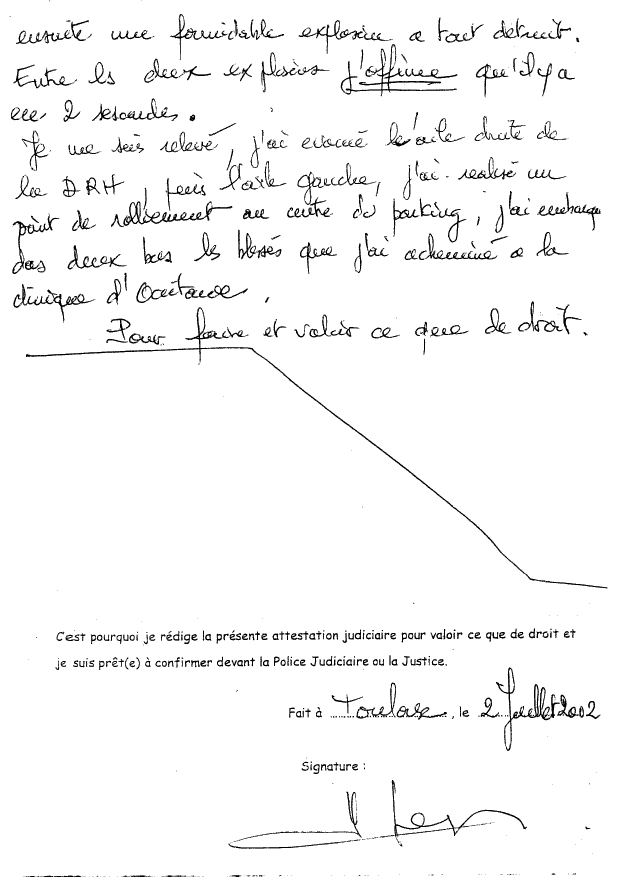 ensuite une formidable explosion a tout detruit.
Entre les deux explosions j'affirme qu'il y a
eu 2 secondes.
Je me suis relevé, j'ai evacué l'aile droite de
la DRH, puis l'aile gauche, j'ai realisé un
point de ralliement au centre du parking, j'ai embarqué
dans deux bus les blessés que j'ai acheminé a la
clinique d'Occitanie.
Pour faire et valoir ce que de droit.
C'est pourquoi je rédige la présente attestation judiciaire pour valoir ce que de droit et
je suis prêt(e) à confirmer devant la Police Judiciaire ou la Justice.
Fait à Toulouse, le 2 Juillet 2002
Signature :